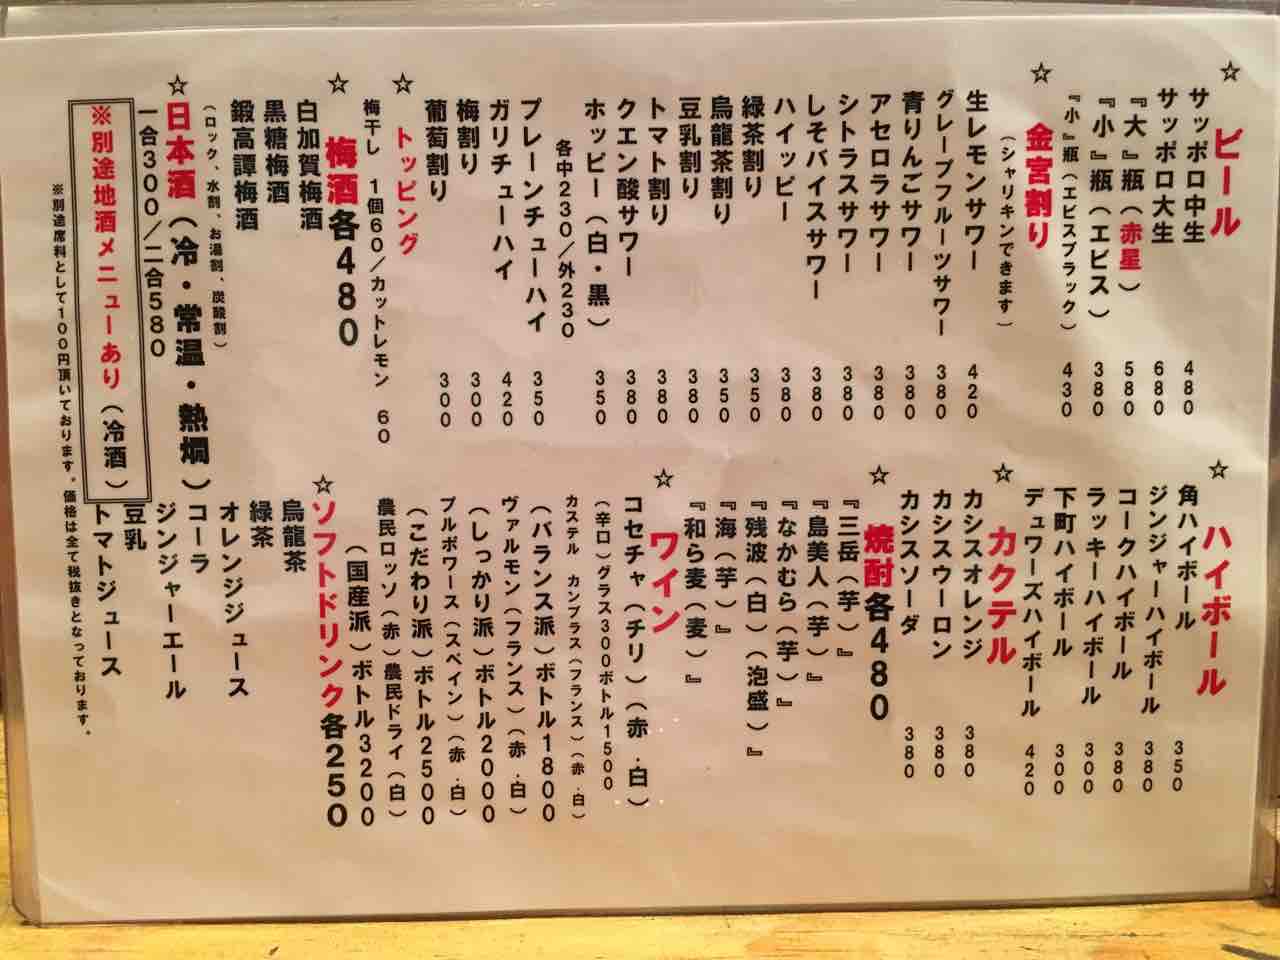 ☆ビール
サッポロ中生 480
サッポロ大生 680
『大』瓶(赤星) 580
『小』瓶(エビス) 380
『小』瓶(エビスブラック) 430
☆金宮割り
(シャリキンできます)
生レモンサワー 420
グレープフルーツサワー 380
青りんごサワー 380
アセロラサワー 380
シトラスサワー 380
しそバイスサワー 380
ハイッピー 380
緑茶割り 350
烏龍茶割り 350
豆乳割り 380
トマト割り 380
クエン酸サワー 380
ホッピー(白・黒) 350
各中230/外230
プレーンチューハイ 350
ガリチューハイ 420
梅割り 300
葡萄割り 300
☆トッピング
梅干し 1個60/カットレモン 60
☆梅酒各480
白加賀梅酒
黒糖梅酒
鍛高譚梅酒
(ロック、水割、お湯割、炭酸割)
☆日本酒(冷・常温・熱燗)
一合300/二合580
※別途地酒メニューあり(冷酒)
※別途席料として100円頂いております。価格は全て税抜きとなっております。
☆ハイボール
角ハイボール 350
ジンジャーハイボール 380
コークハイボール 380
ラッキーハイボール 300
下町ハイボール 300
デュワーズハイボール 420
☆カクテル
カシスオレンジ 380
カシスウーロン 380
カシスソーダ 380
☆焼酎各480
『三岳(芋)』
『島美人(芋)』
『なかむら(芋)』
『残波(白)(泡盛)』
『海(芋)』
『和ら麦(麦)』
☆ワイン
コセチャ(チリ)(赤.白)
(辛口)グラス300ボトル1500
カステル カンプラス(フランス)(赤.白)
(バランス派)ボトル1800
ヴァルモン(フランス)(赤.白)
(しっかり派)ボトル2000
プルポワース(スペイン)(赤.白)
(こだわり派)ボトル2500
農民ロッソ(赤)農民ドライ(白)
(国産派)ボトル3200
☆ソフトドリンク各250
烏龍茶
緑茶
オレンジジュース
コーラ
ジンジャーエール
豆乳
トマトジュース